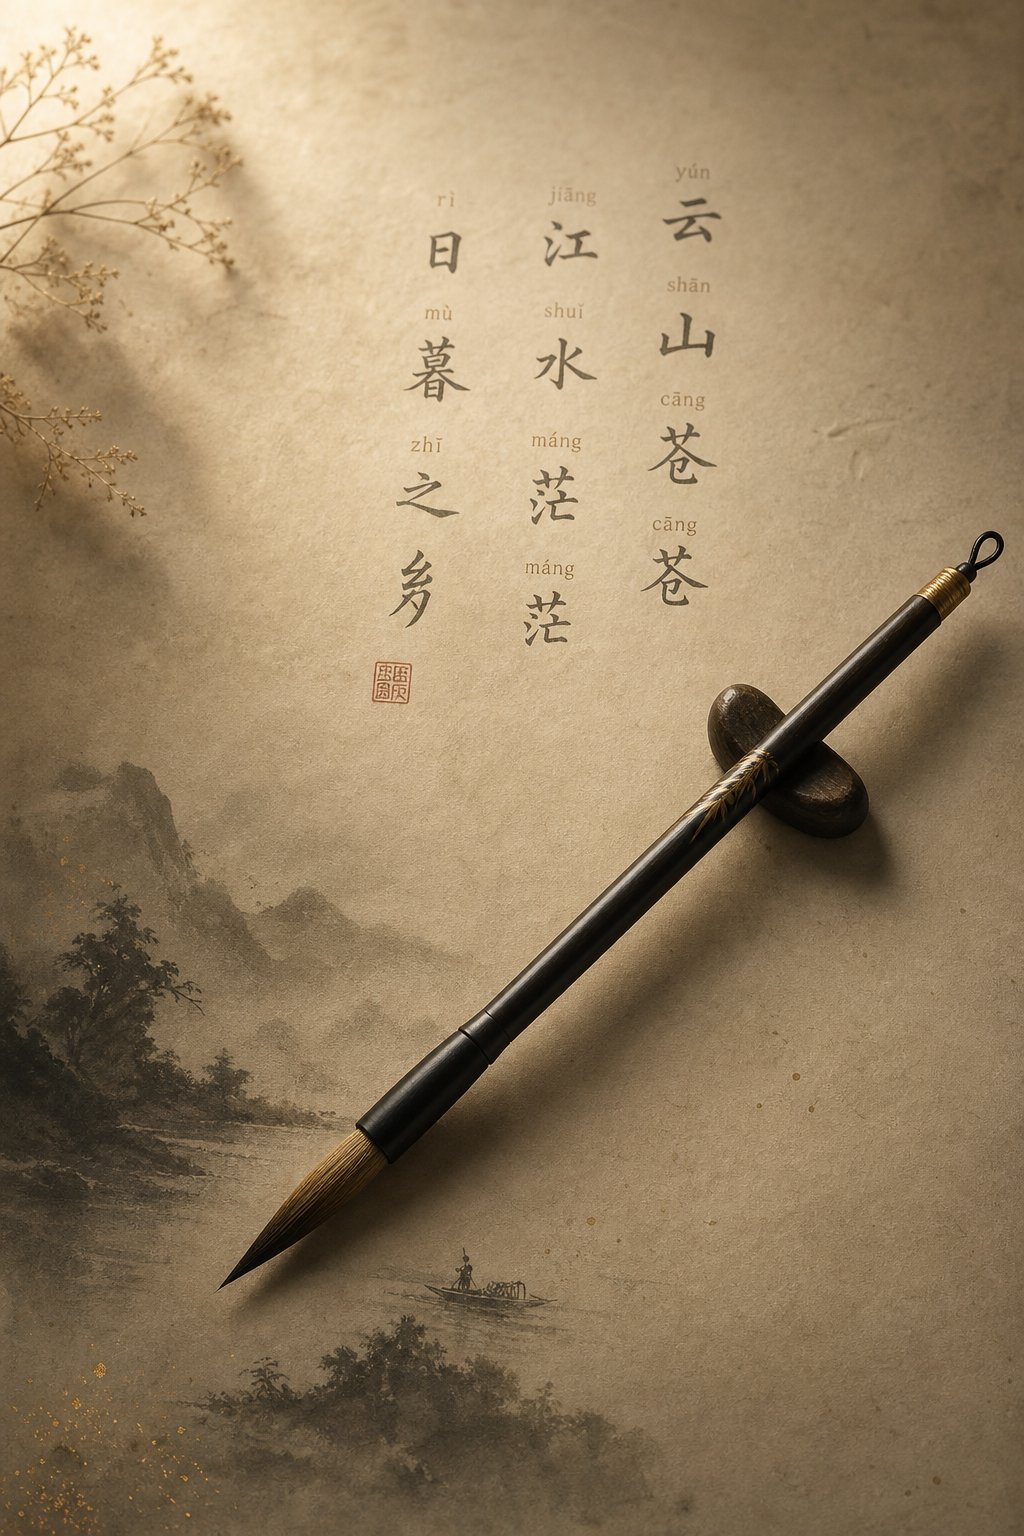 yún shān cāng cāng
云山苍苍
jiāng shuǐ máng máng
江水茫茫
rì mù zhī
日暮之